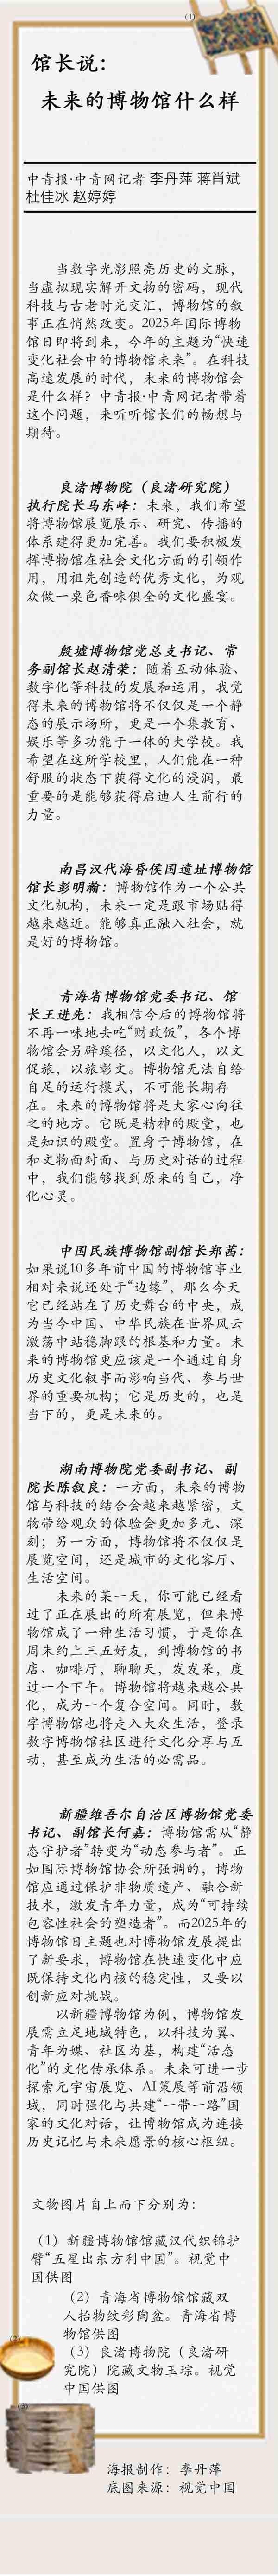 (1)
馆长说：
未来的博物馆什么样
中青报·中青网记者 李丹萍 蒋肖斌
杜佳冰 赵婷婷
当数字光影照亮历史的文脉，
当虚拟现实解开文物的密码，现代
科技与古老时光交汇，博物馆的叙
事正在悄然改变。2025年国际博物
馆日即将到来，今年的主题为“快速
变化社会中的博物馆未来”。在科技
高速发展的时代，未来的博物馆会
是什么样？中青报·中青网记者带着
这个问题，来听听馆长们的畅想与
期待。
良渚博物院（良渚研究院）
执行院长马东峰：未来，我们希望
将博物馆展览展示、研究、传播的
体系建得更加完善。我们要积极发
挥博物馆在社会文化方面的引领作
用，用祖先创造的优秀文化，为观
众做一桌色香味俱全的文化盛宴。
殷墟博物馆党总支书记、常
务副馆长赵清荣：随着互动体验、
数字化等科技的发展和运用，我觉
得未来的博物馆将不仅仅是一个静
态的展示场所，更是一个集教育、
娱乐等多功能于一体的大学校。我
希望在这所学校里，人们能在一种
舒服的状态下获得文化的浸润，最
重要的是能够获得启迪人生前行的
力量。
南昌汉代海昏侯国遗址博物馆
馆长彭明瀚：博物馆作为一个公共
文化机构，未来一定是跟市场贴得
越来越近。能够真正融入社会，就
是好的博物馆。
青海省博物馆党委书记、馆
长王进先：我相信今后的博物馆将
不再一味地去吃“财政饭”，各个博
物馆会另辟蹊径，以文化人，以文
促旅，以旅彰文。博物馆无法自给
自足的运行模式，不可能长期存
在。未来的博物馆将是大家心向往
之的地方。它既是精神的殿堂，也
是知识的殿堂。置身于博物馆，在
和文物面对面、与历史对话的过程
中，我们能够找到原来的自己，净
化心灵。
中国民族博物馆副馆长郑茜：
如果说10多年前中国的博物馆事业
相对来说还处于“边缘”，那么今天
它已经站在了历史舞台的中央，成
为当今中国、中华民族在世界风云
激荡中站稳脚跟的根基和力量。未
来的博物馆更应该是一个通过自身
历史文化叙事而影响当代、参与世
界的重要机构；它是历史的，也是
当下的，更是未来的。
湖南博物院党委副书记、副
院长陈叙良：一方面，未来的博物
馆与科技的结合会越来越紧密，文
物带给观众的体验会更加多元、深
刻；另一方面，博物馆将不仅仅是
展览空间，还是城市的文化客厅、
生活空间。
未来的某一天，你可能已经看
过了正在展出的所有展览，但来博
物馆成了一种生活习惯，于是你在
周末约上三五好友，到博物馆的书
店、咖啡厅，聊聊天，发发呆，度
过一个下午。博物馆将越来越公共
化，成为一个复合空间。同时，数
字博物馆也将走入大众生活，登录
数字博物馆社区进行文化分享与互
动，甚至成为生活的必需品。
新疆维吾尔自治区博物馆党委
书记、副馆长何嘉：博物馆需从“静
态守护者”转变为“动态参与者”。正
如国际博物馆协会所强调的，博物
馆应通过保护非物质遗产、融合新
技术，激发青年力量，成为“可持续
包容性社会的塑造者”。而2025年的
博物馆日主题也对博物馆发展提出
了新要求，博物馆在快速变化中应
既保持文化内核的稳定性，又要以
创新应对挑战。
以新疆博物馆为例，博物馆发
展需立足地域特色，以科技为翼、
青年为媒、社区为基，构建“活态
化”的文化传承体系。未来可进一步
探索元宇宙展览、AI策展等前沿领
域，同时强化与共建“一带一路”国
家的文化对话，让博物馆成为连接
历史记忆与未来愿景的核心枢纽。
文物图片自上而下分别为：
（1）新疆博物馆馆藏汉代织锦护
臂“五星出东方利中国”。视觉中
国供图
（2）青海省博物馆馆藏双
人抬物纹彩陶盆。青海省博
物馆供图
（3）良渚博物院（良渚研
究院）院藏文物玉琮。视觉
中国供图
(2)
(3)
海报制作：李丹萍
底图来源：视觉中国